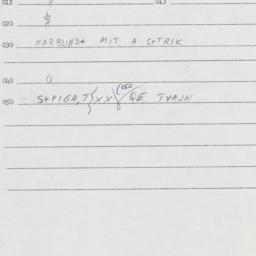 012 013
020 $
030 FARBUND+ MIT A S+TRIK
040 0
050 S+PIGA,T}XX} 050 QE TVAJN